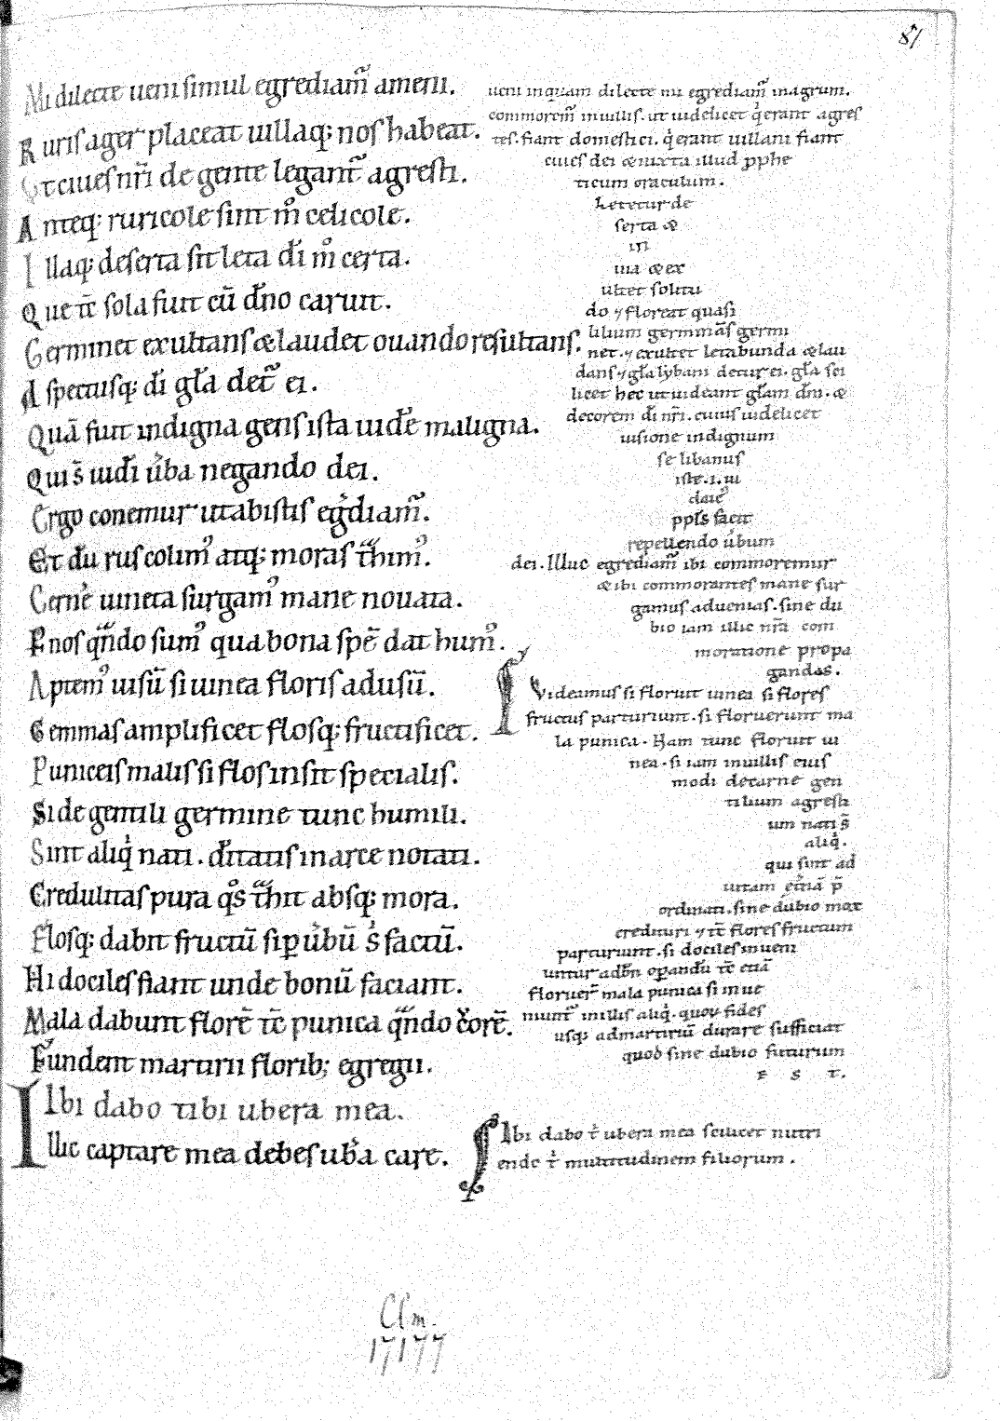 81
Mi dilecte ueni simul egrediam᷑ ameni.
Ruris ager placeat uillaq; nos habeat.
Et ciues nr̄i de gente legant᷑ agresti.
Anteq; ruricole sint m̊ celicole.
Illaq; deserta sit leta dī m̊ certa.
Que tc̄ sola fuit cū dn̄o caruit.
Germinet exultans & laudet ouando resultans.
Aspectusq; dī gl̄a det᷑ ei.
Quā fuit indigna gens ista uidē maligna.
Quis s̄ iudī ūba negando dei.
Ergo conemur ut abistis egrediam᷑.
Et dū rus colimꝰ atq; moras trahimꝰ.
Cernē uineta surgamꝰ mane nouata.
Et nos qn̄do sumꝰ qua bona spē dat humꝰ.
Aptemꝰ uisū si uinea floris ad usū.
Gemmas amplificet flosq; fructificet.
Puniceis malis si flos insit specialis.
Si de gentili germine tunc humili.
Sint aliq̇ nati. dr̄itatis in arce notati.
Credulitas pura q̊s trahit absq; mora.
Flosq; dabit fructū sip ūbū s̄ factū.
Hi dociles fiant unde bonū faciant.
Mala dabunt florē tc̄ punica qn̄do c̊orē.
Fundent martirii florib; egregii.
Ibi dabo tibi ubera mea.
Illic captare mea debes ub̄a care.
ueni inquam dilecte mi egrediam᷑ in agrum.
commorem᷑ in uillis. ut uidelicet q̇ erant agres
tes. fiant domestici. q̇ erant uillani fiant
ciues dei & iuxta illud p̱phe
ticum oraculum.
Letetur de
serta &
in
uia & ex
ultet solitu
do ⁊ floreat quasi
lilium germinās germi
net. ⁊ exultet letabunda & lau
dans ⁊ gl̄a lybani detur ei. gl̄a sci
licet hec ut uideant gl̄am dn̄i. &
decorem dī nr̄i. cuius uidelicet
uisione indignum
se libanus
iste .i. iu
daicꝰ
ppl̄s facit
repellendo ūbum
dei. Illuc egrediam᷑ ibi commoremur
& ibi commorantes mane sur
gamus ad uenias. sine du
bio iam illic nr̄a com
moratione propa
gandas.
Videamus si floruit uinea si flores
fructus parturiunt. si floruerunt ma
la punica. Nam tunc floruit ui
nea. si iam in uillis eius
modi de carne gen
tilium agresti
um nati s̄
aliq̇.
qui sint ad
uitam et̄nā p̄
ordinati. sine dubio mox
credituri ⁊ tc̄ flores fructum
parturiunt. si dociles inueni
untur ad bn̄ operandū tc̄ etiā
floruer̄ mala punica si inue
niunt᷑ in illis aliq̇. quoꝝ fides
usq; ad martiriū durare sufficiat
quod sine dubio futurum
E S T.
Ibi dabo t̄ ubera mea scilicet nutri
ende t̄ multitudinem filiorum.
Clm.
17177